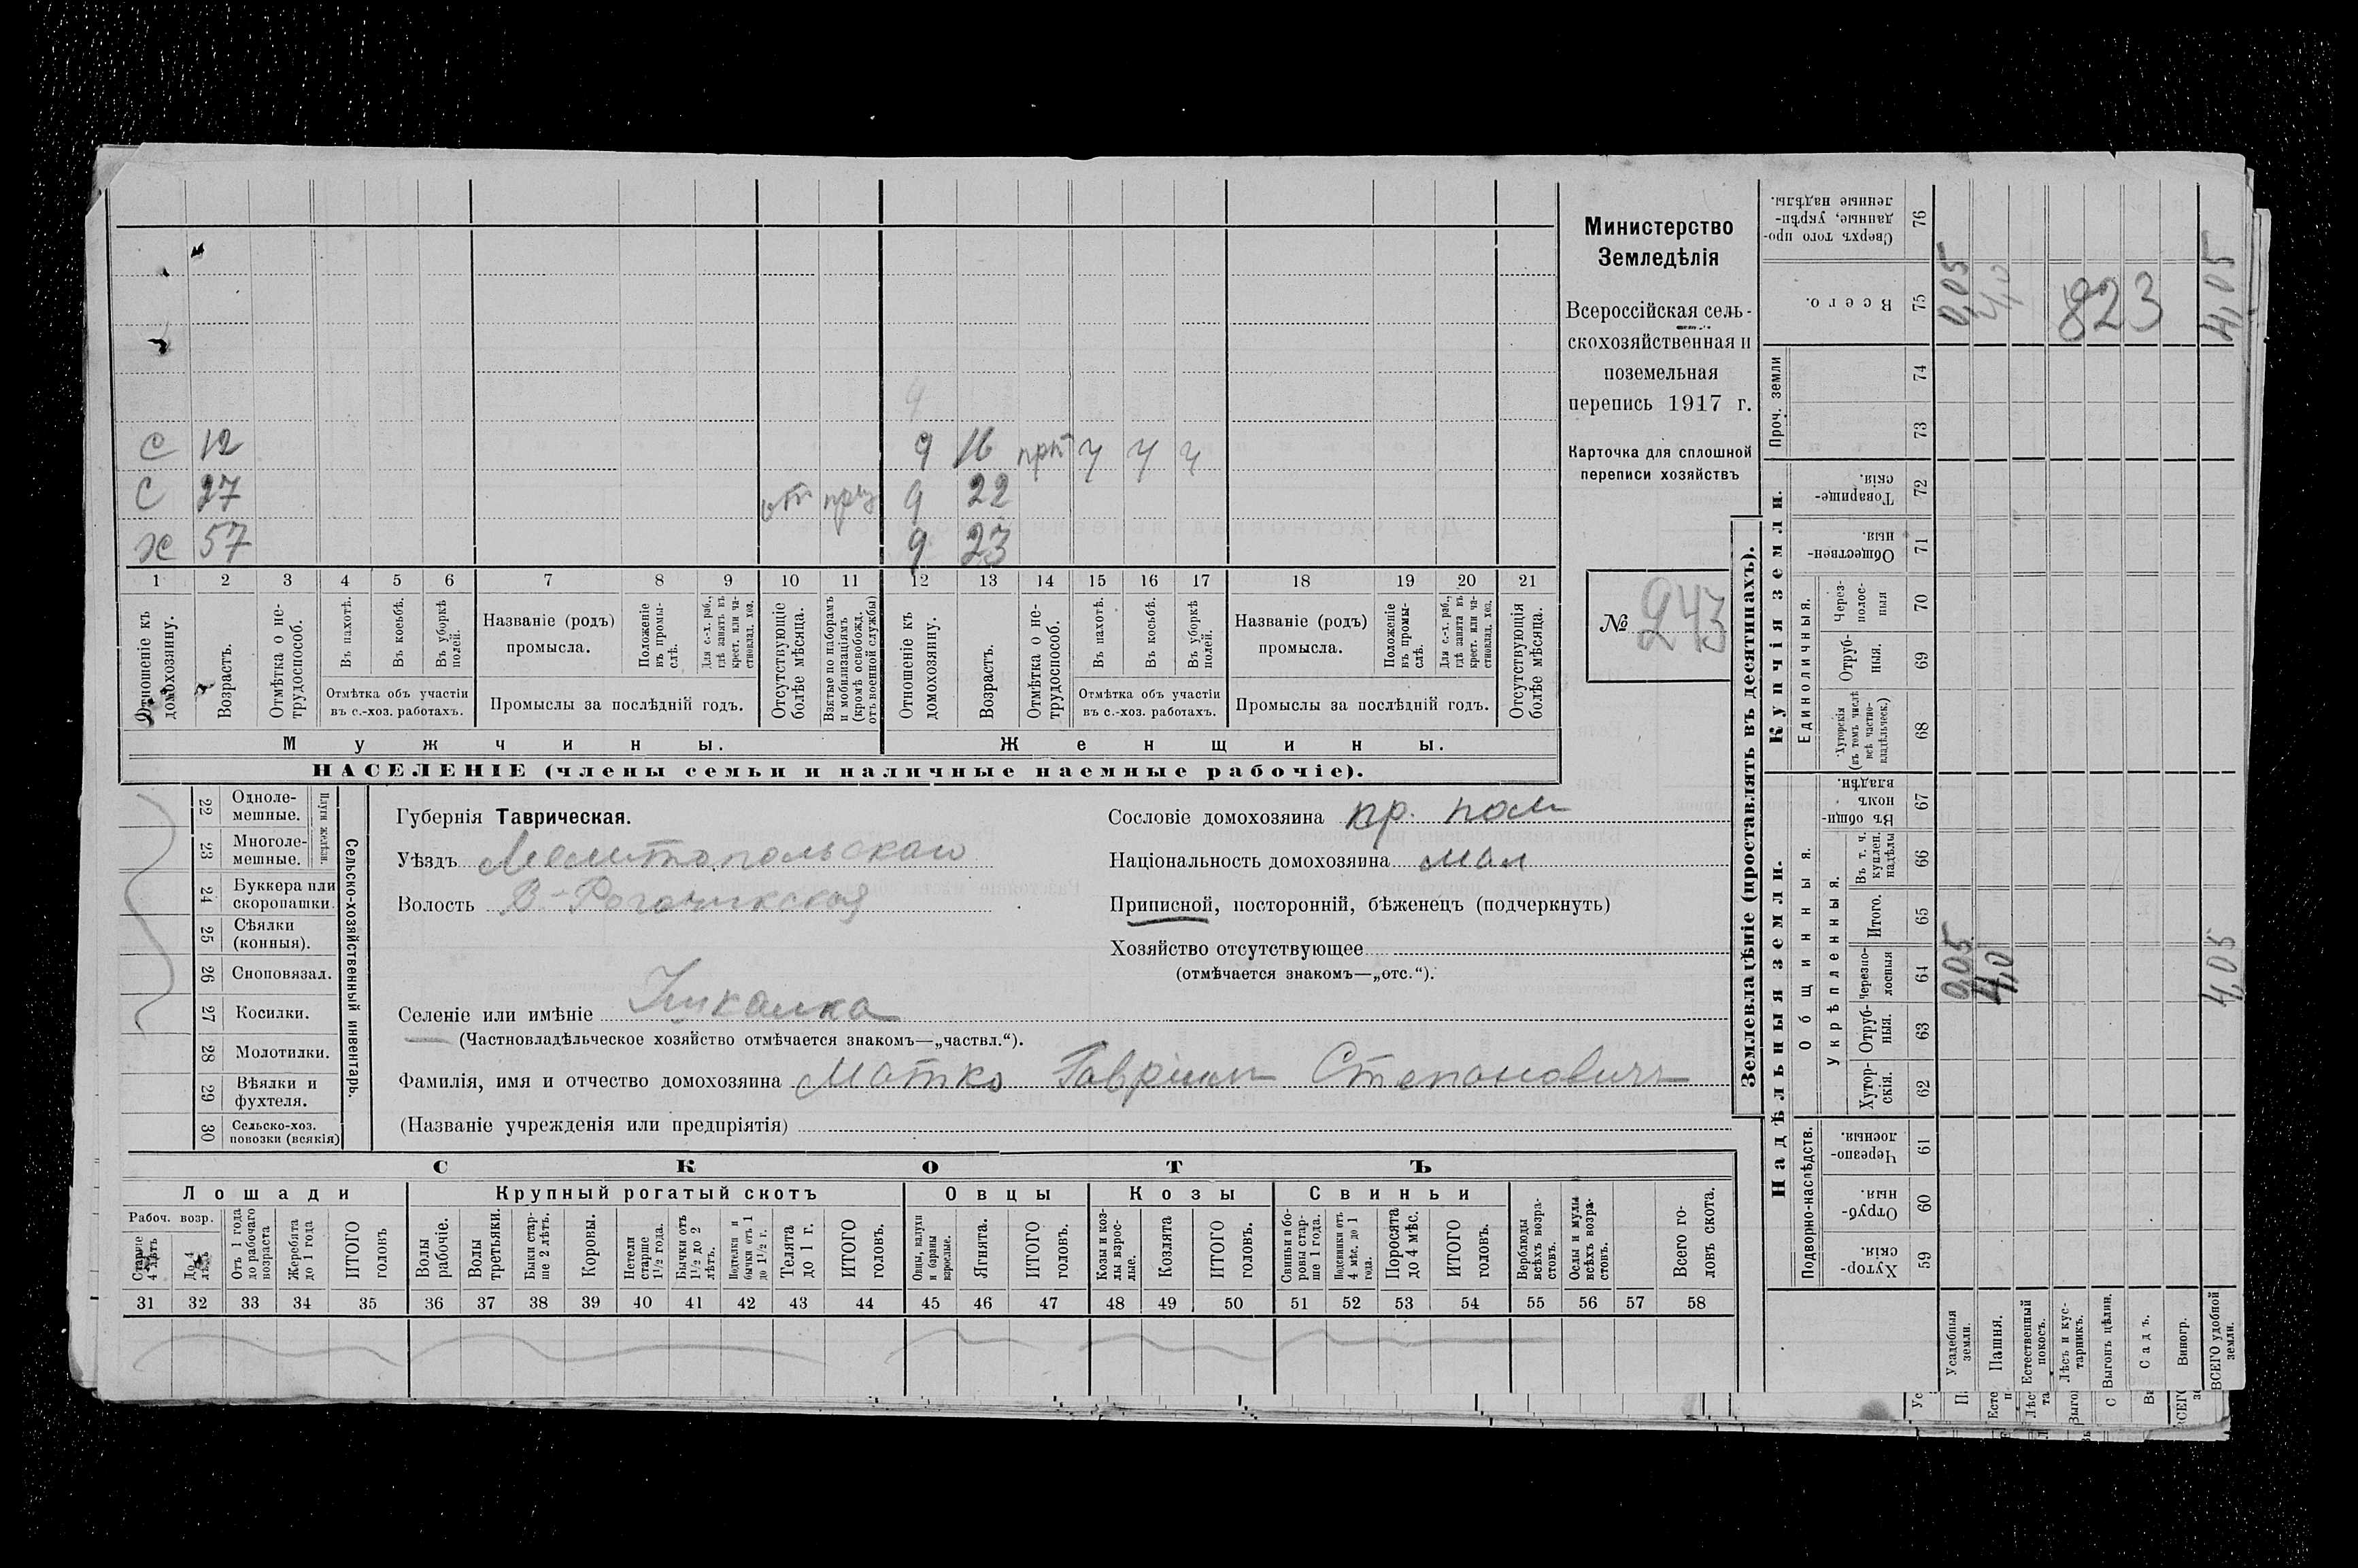 С 12 9 16 прп ч ч ч
С 27 от 9 22
х 57 9 23
1 2 3 4 5 6 7 8 9 10 11 12 13 14 15 16 17 18 19 20 21
Отношеніе къ домохозяину.
Возрастъ.
Отмѣтка о не-
трудоспособ.
Въ пахотѣ.
Въ косьбѣ.
Въ уборкѣ
полей.
Отмѣтка объ участіи
въ с.-хоз. работахъ.
Названіе (родъ)
промысла.
Положеніе
въ промы-
слѣ.
Для с.-х. раб.,
гдѣ занятъ въ
крест. или ча-
стновлад. хоз.
Промыслы за послѣдній годъ.
Отсутствующіе
болѣе мѣсяца.
Взятые по наборамъ
и мобилизаціямъ
(кромѣ освобожд.
отъ военной службы)
Отношеніе къ
домохозяину.
Возрастъ.
Отмѣтка о не-
трудоспособ.
Въ пахотѣ.
Въ косьбѣ.
Въ уборкѣ
полей.
Отмѣтка объ участіи
въ с.-хоз. работахъ.
Названіе (родъ)
промысла.
Положеніе
въ промы-
слѣ.
Для с.-х. раб.,
гдѣ занята въ
крест. или ча-
стновлад. хоз.
Промыслы за послѣдній годъ.
Отсутствующія
болѣе мѣсяца.
Мужчины. Женщины.
НАСЕЛЕНІЕ (члены семьи и наличные наемные рабочіе).
Министерство
Земледѣлія
Всероссійская сель-
скохозяйственная и
поземельная
перепись 1917 г.
Карточка для сплошной
переписи хозяйствъ
№ 243
22 Одноле-
мешные.
23 Многоле-
мешные.
Плуги желѣзн.
24 Буккера или
скоропашки.
25 Сѣялки
(конныя).
26 Сноповязал.
27 Косилки.
28 Молотилки.
29 Вѣялки и
фухтеля.
30 Сельско-хоз.
повозки (всякія)
Сельско-хозяйственный инвентарь.
Губернія Таврическая.
Уѣздъ Мелитопольскаго
Волость В-Рогачикская
Селеніе или имѣніе
(Частновладѣльческое хозяйство отмѣчается знакомъ—„частвл.“).
Фамилія, имя и отчество домохозяина Матко Гавріилъ Степановичъ
(Названіе учрежденія или предпріятія)
Сословіе домохозяина кр.
Національность домохозяина мал
Приписной, посторонній, бѣженецъ (подчеркнуть)
Хозяйство отсутствующее
(отмѣчается знакомъ—„отс.“).
СКОТЪ
Лошади Крупный рогатый скотъ Овцы Козы Свиньи
Рабоч. возр.
Старше
4 лѣтъ
До 4
лѣтъ
Отъ 1 года
до рабочаго
возраста
Жеребята
до 1 года
ИТОГО
головъ
Волы
рабочіе.
Волы
третьяки.
Быки стар-
ше 2 лѣтъ.
Коровы.
Нетели
старше
1½ года.
Бычки отъ
1½ до 2
лѣтъ.
Подтелки и
бычки отъ 1
до 1½ г.
Телята
до 1 г.
ИТОГО
головъ.
Овцы, валухи
и бараны
взрослые.
Ягнята.
ИТОГО
головъ.
Козы и коз-
лы взрос-
лые.
Козлята
ИТОГО
головъ.
Свиньи и бо-
ровы стар-
ше 1 года.
Подсвинки отъ
4 мѣс. до 1
года.
Поросята
до 4 мѣс.
ИТОГО
головъ.
Верблюды
всѣхъ возра-
стовъ.
Ослы и мулы
всѣхъ возра-
стовъ.
Всего го-
ловъ скота.
31 32 33 34 35 36 37 38 39 40 41 42 43 44 45 46 47 48 49 50 51 52 53 54 55 56 57 58
Землевладѣніе (проставлять въ десятинахъ).
Надѣльныя земли. Купчія земли. Проч. земли
Подворно-наслѣдств.
Общинныя.
Укрѣпленныя.
Единоличныя.
59 Хутор-
скія.
60 Отруб-
ныя.
61 Черезпо-
лосныя.
62 Хутор-
скія.
63 Отруб-
ныя.
64 Черезпо-
лосныя
65 Итого.
66 Въ т. ч.
куплен.
надѣлы
67 Въ общи-
номъ
владѣн.
68 Хуторскія
(въ томъ числѣ
всѣ частно-
владѣльческ.)
69 Отруб-
ныя.
70 Через-
полос-
ныя
71 Обществен-
ныя.
72 Товарище-
скія.
73 74
75 Всего.
76 Сверхъ того про-
данные, укрѣп-
ленные надѣлы.
Усадебныя
земли.
Пашня.
Естественный
покосъ.
Лѣсъ и кус-
тарникъ.
Выгонъ цѣлин.
Садъ.
Виногр.
ВСЕГО удобной
земли.
0,05 4,0 4,05
0,05 4,0 823 4,05